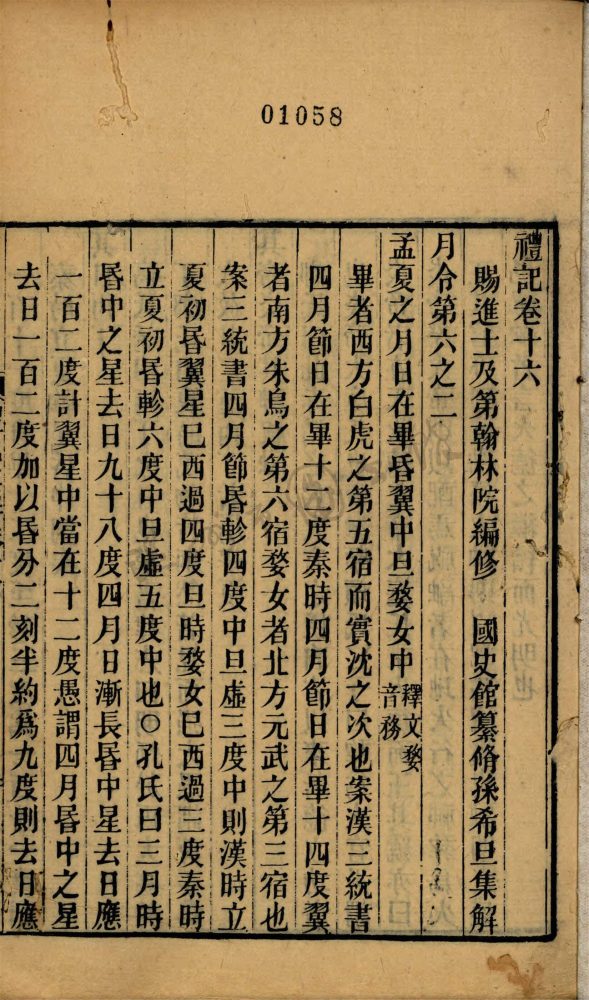 01058
禮記卷十六
賜進士及第翰林院編修　國史館纂脩孫希旦集解
月令第六之二
孟夏之月日在畢昏翼中旦婺女中釋文婺音務
畢者西方白虎之第五宿而實沈之次也案漢三統書
四月節日在畢十二度秦時四月節日在畢十四度翼
者南方朱鳥之第六宿婺女者北方元武之第三宿也
案三統書四月節昬軫四度中旦虛三度中則漢時立
夏初昬翼星巳西過四度旦時婺女巳西過三度秦時
立夏初昬軫六度中旦虛五度中也○孔氏曰三月時
昬中之星去日九十八度四月日漸長昬中星去日應
一百二度計翼星中當在十二度愚謂四月昬中之星
去日一百二度加以昬分二刻半約爲九度則去日應